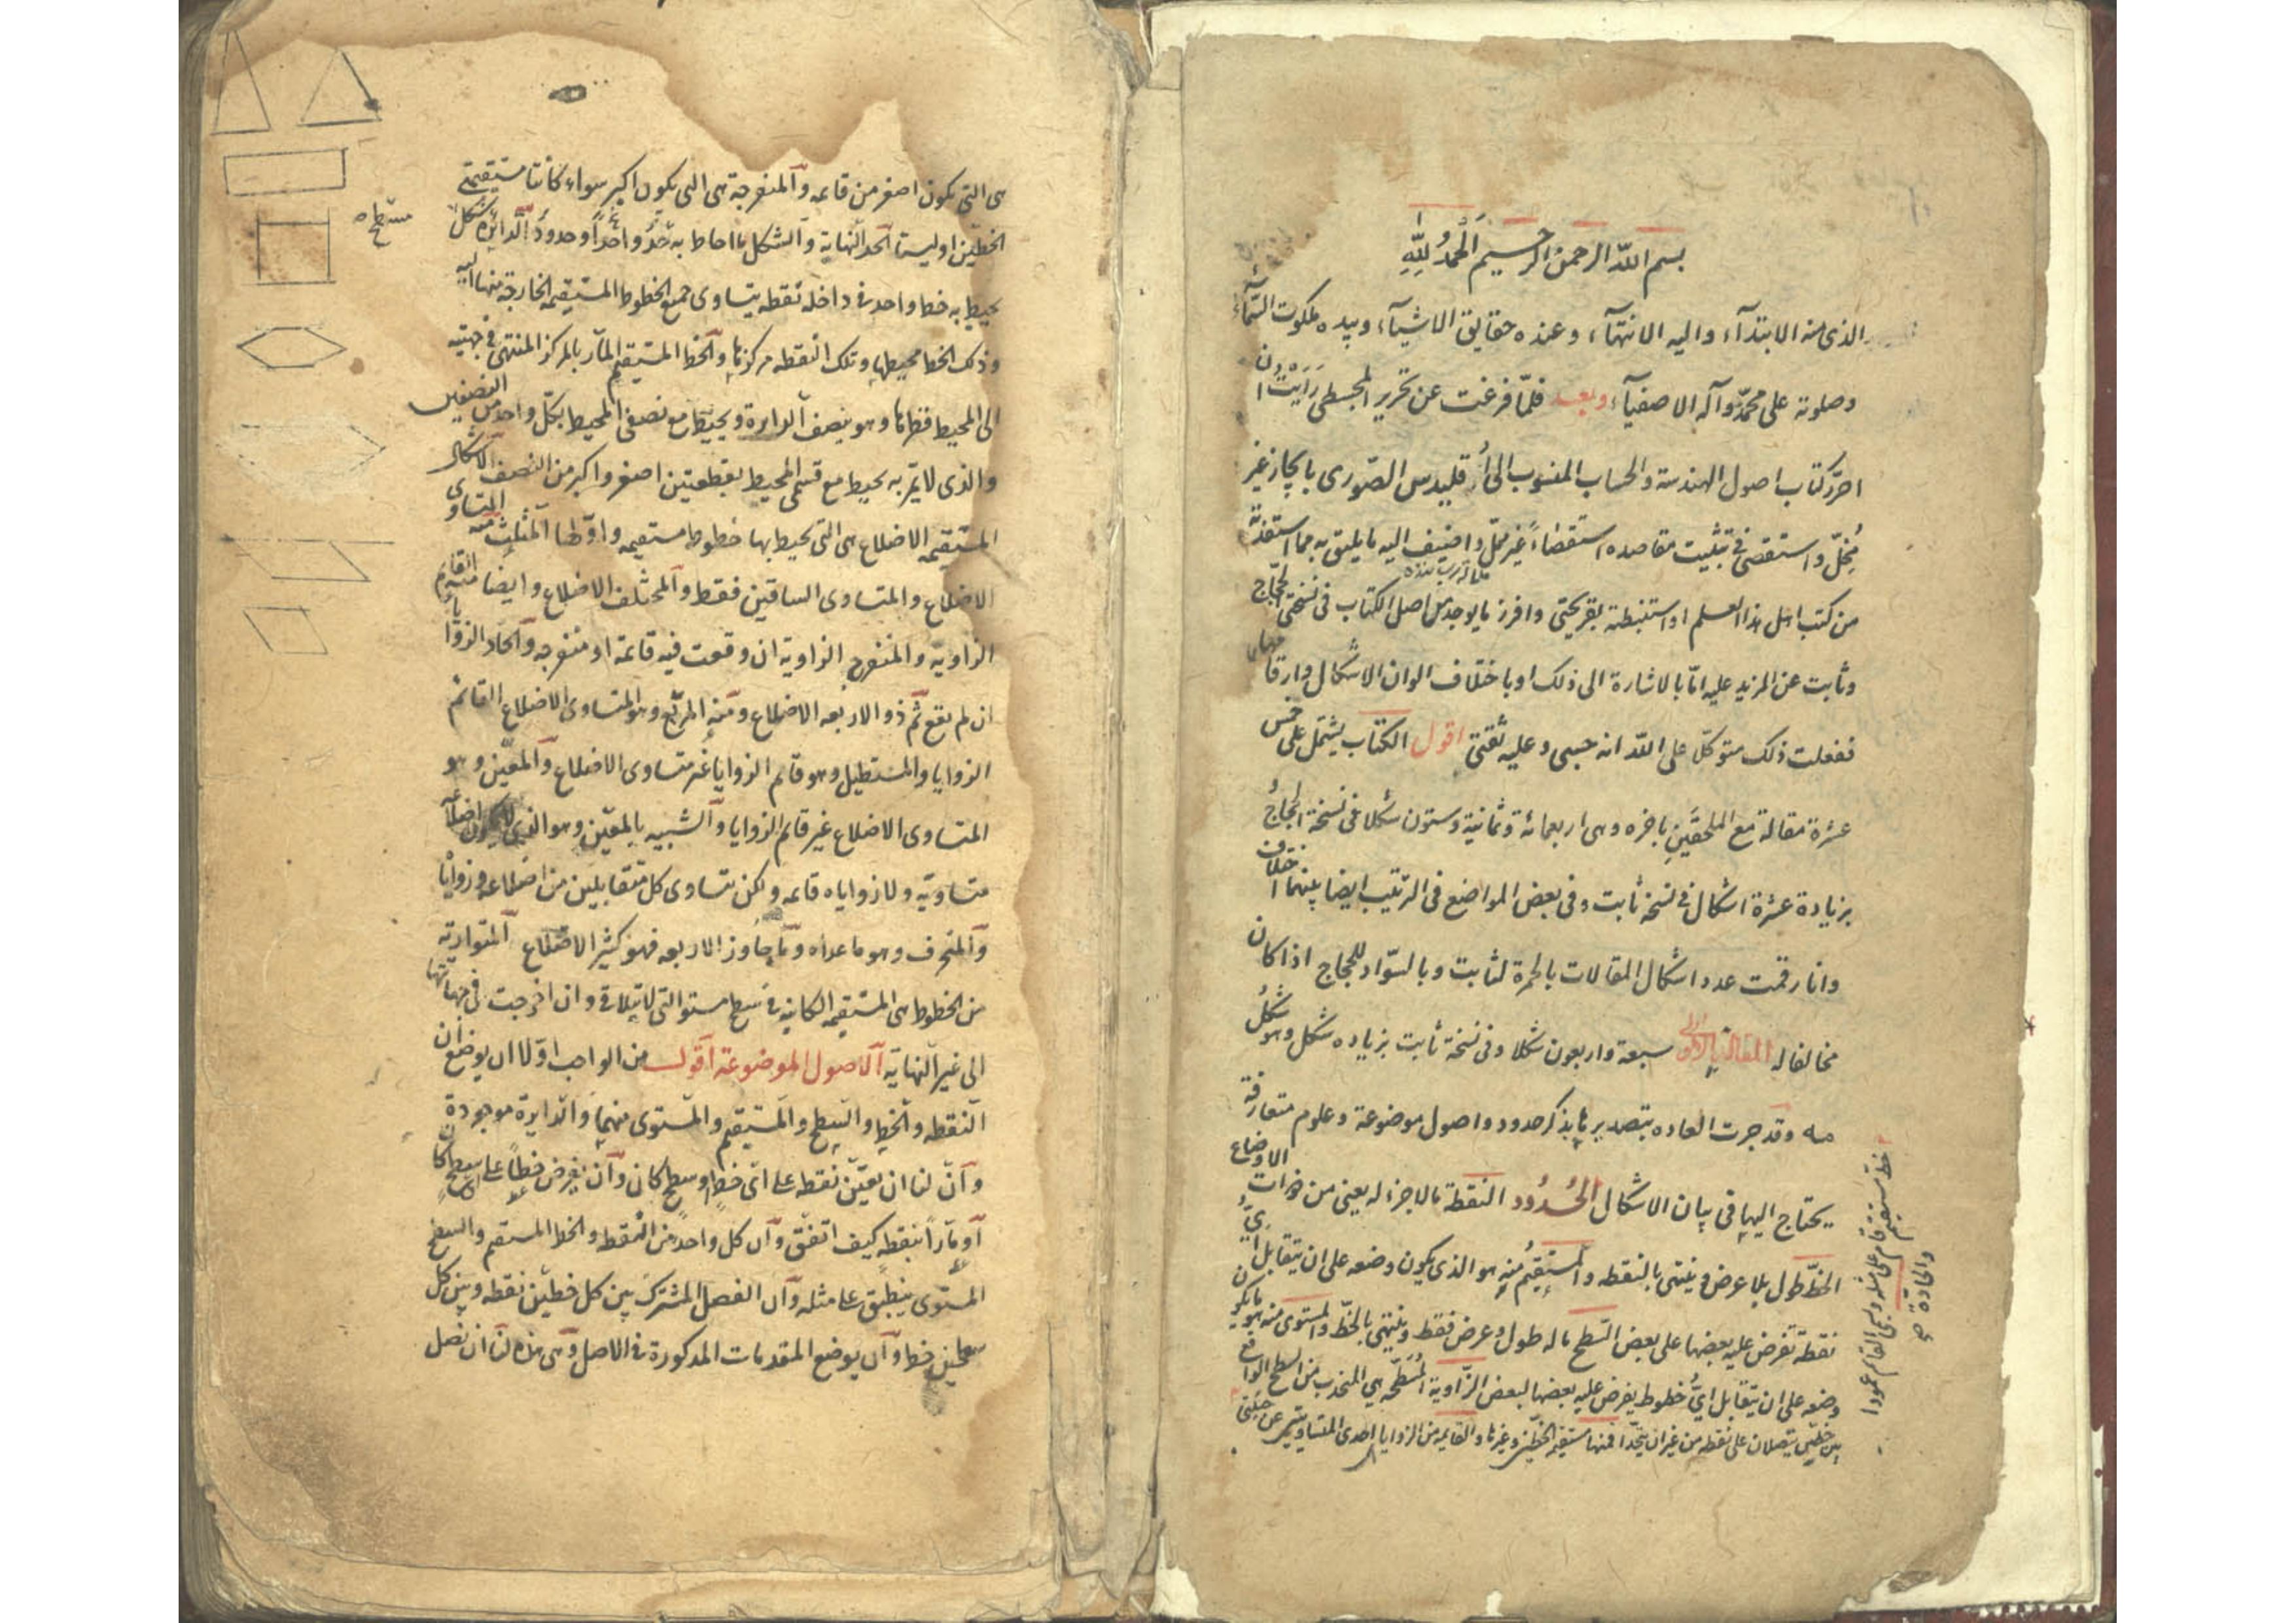 بسم الله الرحمن الرحيم الحمد لله
الذى منه الابتدآء واليه الانتهآء وعنده حقايق الاشيآء وبيده ملكوت السّمآء
وصلوته على محمّد وآله الاصفيآء وبعد فلمّا فرغت عن تحرير المجسطى رايت ان
احرّر كتاب اصول الهندسة والحساب المنسوب الى أُقليدس الصّورى بايجاز غير
مُخِلّ واستقصى فى تثبيت مقاصده استقصاءً غير مملّ واضيف اليه ما يليق به مما استفدته
من كتب اهل هذا العلم او استنبطته بقريحتى وافرز ما يوجد من اصل الكتاب فى نسختى الحجّاج
وثابت عن المزيد عليه امّا بالاشارة الى ذلك او باختلاف الوان الاشكال وارقامها
ففعلت ذلك متوكّلا على الله انه حسبى وعليه ثقتى اقول الكتاب يشتمل على خمس
عشرة مقالة مع الملحقَتَينِ باخره وهى اربعمائة وثمانية وستون شكلا فى نسخة الحجاج
بزيادة عشرة اشكال فى نسخة ثابت وفى بعض المواضع فى الترتيب ايضا بينهما اختلاف
وانا رقمت عدد اشكال المقالات بالحمرة لثابت وبالسّواد للحجاج اذا كان
مخالفا له المقالة الاولى سبعة واربعون شكلا وفى نسخة ثابت بزياده شكل وهو شكل
مه وقد جرت العاده بتصديرها بذكر حدود واصول موضوعة وعلوم متعارفة
يحتاج اليها فى بيان الاشكال الحُدُود النقطة مالا جزء له يعنى من ذوات الاوضاع
الخطّ طول بلا عرض وينتهى بالنقطه والمستقيمُ منه هو الذى يكون وضعه على ان يتقابل اىّ
نقطة تفرض عليه بعضها على بعض السّطح ماله طول وعرض فقط وينتهى بالخطّ والمستوى منه هو ما يكون
وضعه على ان يتقابل اىُّ خطوط يفرض عليه بعضها لبعض الزّاوية المُسَطّحه هى المنحدب من السطح الواقع
بين خطّين يتصلان على نقطه من غير ان يتّحدا فمنها مستقيمة الخطّين وغيرها والقايمه من الزوايا احدى المتساويتين عن جنبتى
خط مستقيم قام على مثله ويسمى القائم عمودا
والحادة
هى التى يكون اصغر من قائمه والمنفرجة هى التى يكون اكبر سواء كانتا مستقيمتى
الخطّين او ليستا الحد النهاية والشكل ما احاط به حدٌّ واحدٌ او حدودٌ الدائرة شكل
يحيط به خط واحد فى داخله نقطه يتساوى جميع الخطوط المستقيمه الخارجة منها اليه
وذلك الخط محيطها وتلك النقطه مركزها والخط المستقيم المآر بالمركز المنتهى فى جهتيه
الى المحيط قطرها وهو ينصف الدايرة ويحيط مع نصفى المحيط بكلّ واحد من النصفين
والذى لا يمّر به يحيط مع قسمى المحيط بقطعتين اصغر واكبر من النصف الاشكال
المستقيمه الاضلاع هى التى يحيط بها خطوط مستقيمه واوّلها المثلث فمنه المتساوى
الاضلاع والمتساوى الساقين فقط والمختلف الاضلاع وايضا منه القايم
الزاوية والمنفرج الزاوية ان وقعت فيه قائمة او منفرجه والحاد الزوايا
ان لم يقع ثم ذو الاربعه الاضلاع ومنه المربّع وهو المتساوى الاضلاع القائم
الزوايا والمستطيل وهو قائم الزوايا غير متساوى الاضلاع والمعيّن وهو
المتساوى الاضلاع غير قائم الزوايا والشبيه بالمعيّن وهو الذى لا يكون اضلاعه
متساويّه ولا زواياه قائمه ولكن تتساوى كل متقابلين من اضلاعه وزواياه
والمنحرف وهو ما عداه وما جاوز الاربعه فهو كثير الاضلاع المتوازيه
من الخطوط هى المستقيمه الكاينه فى سطح مستو التى لا يتلاقى وان اخرجت فى جهاتها
الى غير النهايّه الاصول الموضوعة اقول من الواجب اوّلا ان يوضع ان
النقطه والخط والسطح والمستقيم والمستوى منهما والدايرة موجودة
وانّ لنا ان نعيّن نقطه على اىّ خط او سطح كان وان يفرض خطا على اى سطح كان
او مآرا بنقطه كيف اتفق وان كل واحد من النقطه والخط المستقيم والسطح
المستوى ينطبق على مثله وان الفصل المشترك بين كل خطين نقطه وبين كل
سطحين خط وان يوضع المقدمات المذكورة فى الاصل وهى هذه لنا ان نصل
مسطحه